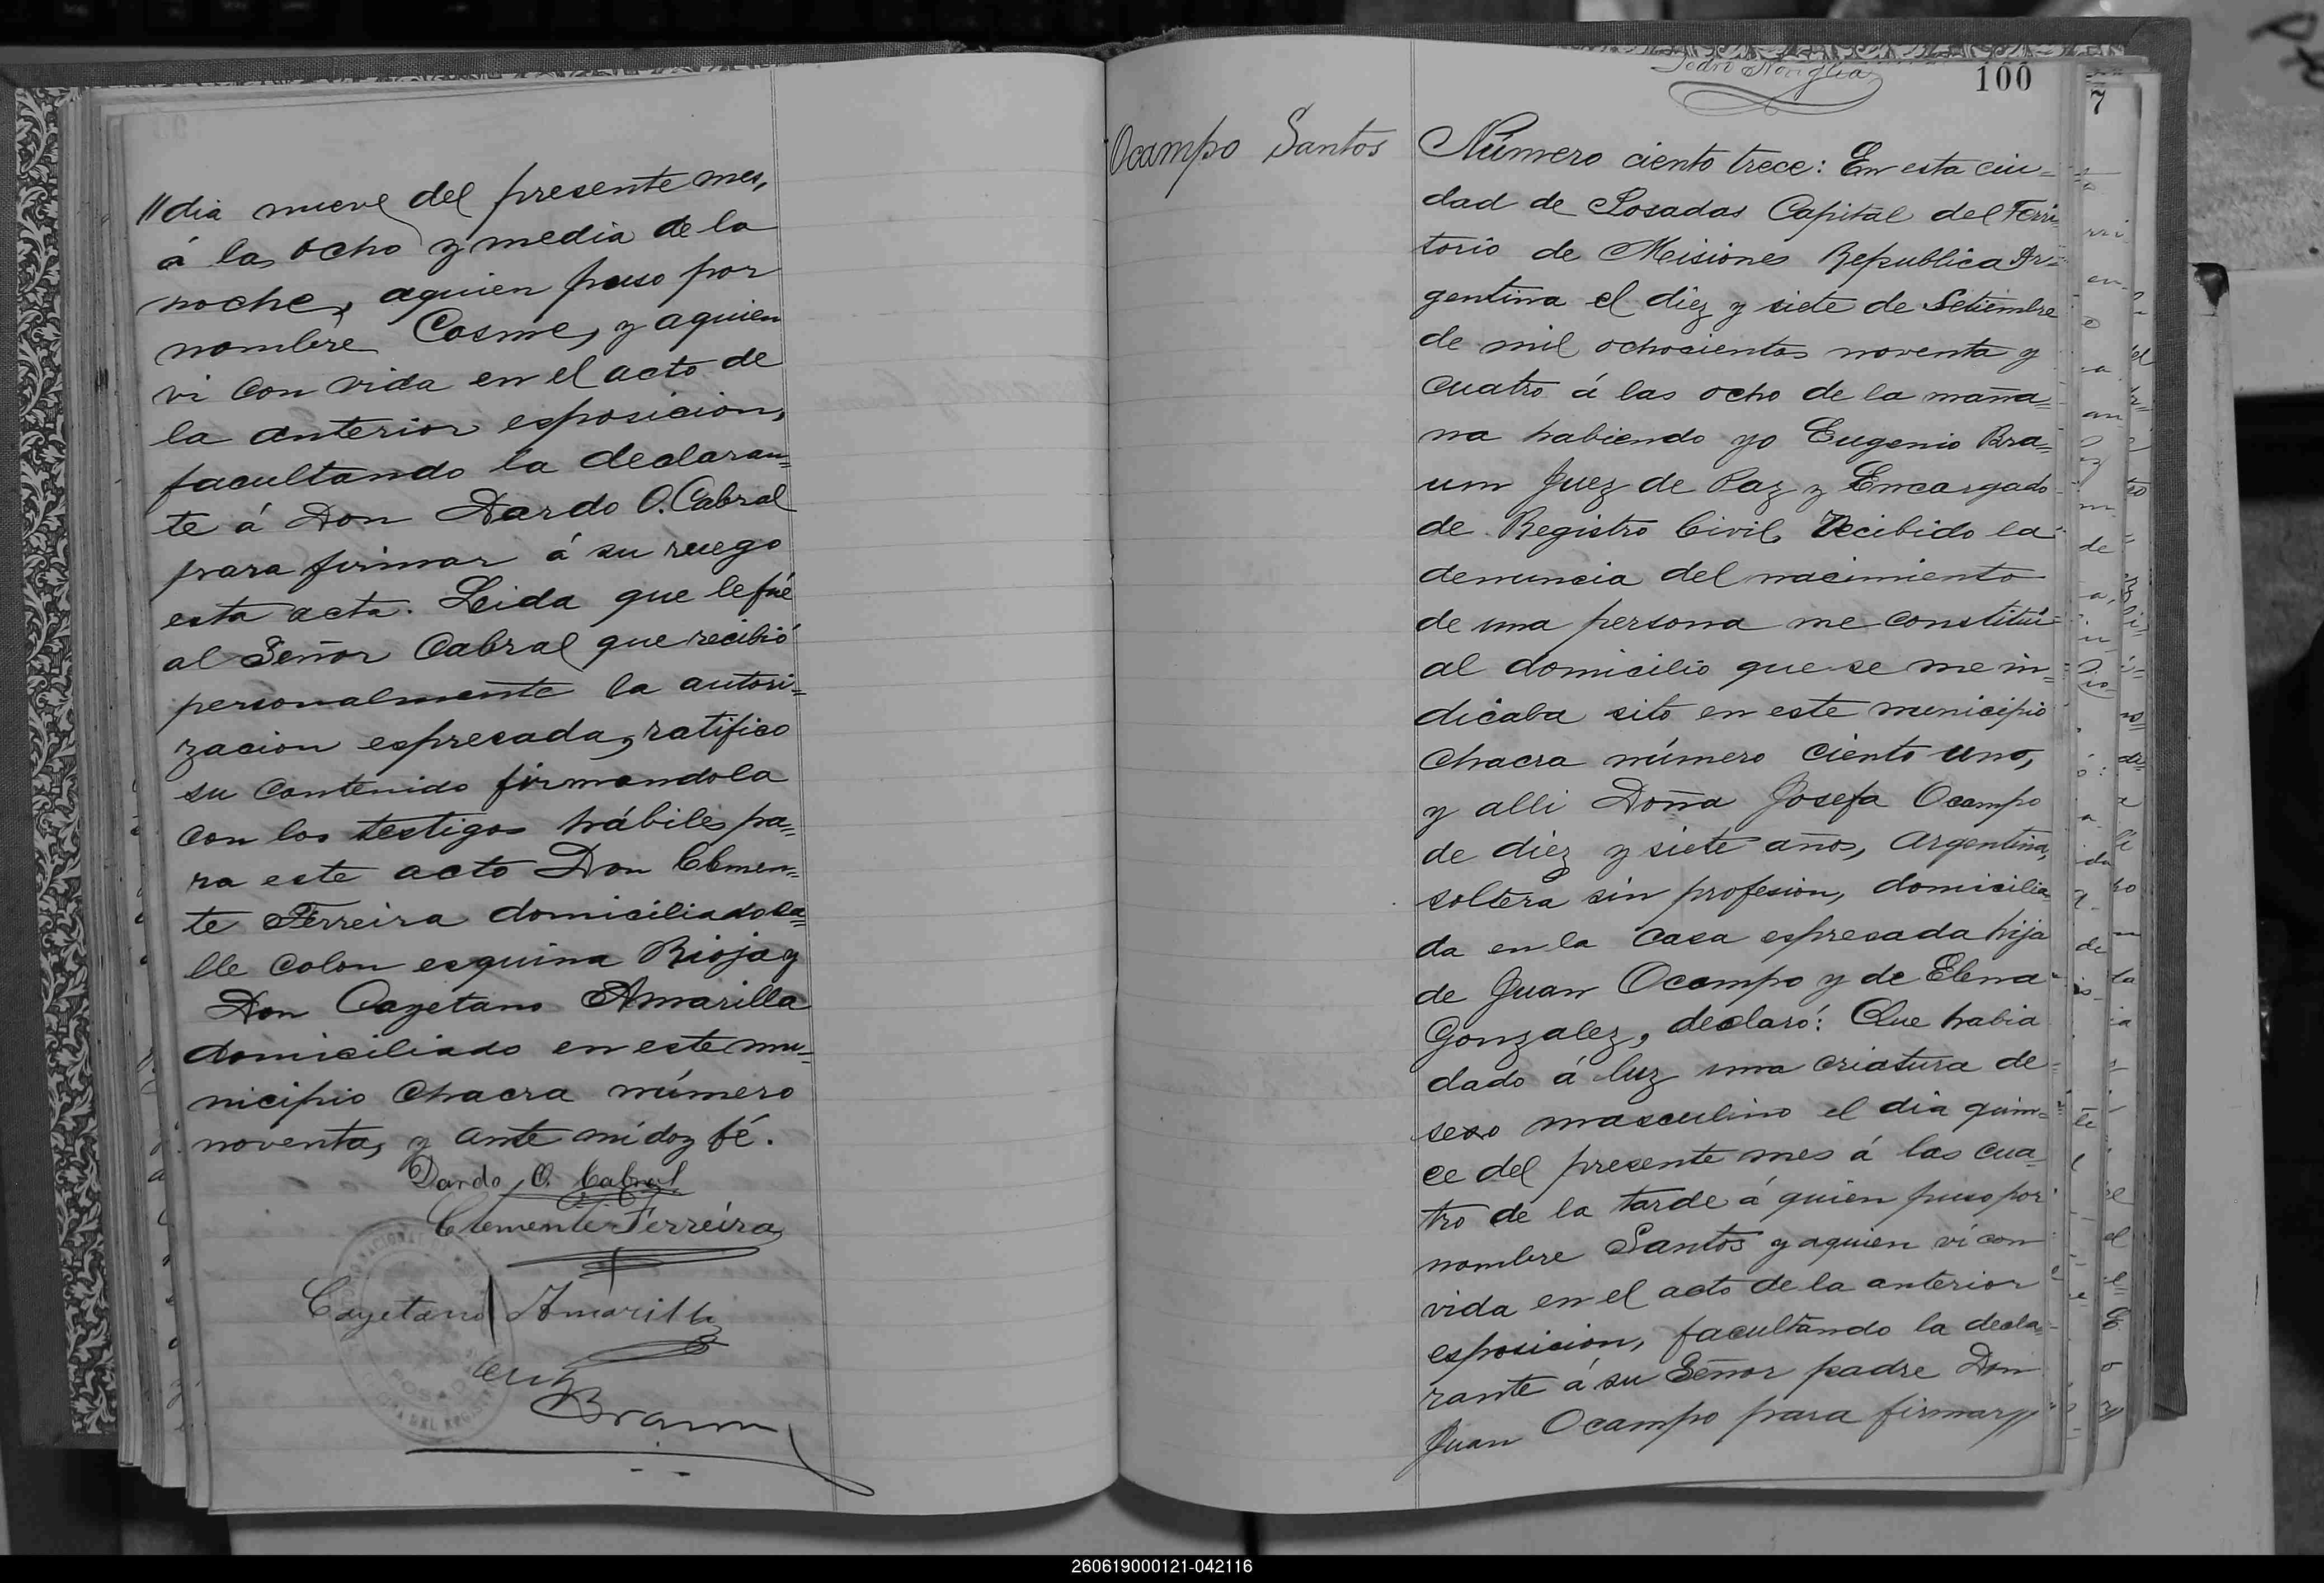 "dia nueve del presente mes,
á las ocho y media de la
noche, aquien puso por
nombre Cosme, y aquien
vi con vida en el acto de
la anterior esposicion,
facultando la declaran=
te á Don Dardo O. Cabral
para firmar á su ruego
esta acta. Leida que le fué
al Señor Cabral que recibió
personalmente la autori=
zacion espresada, ratifico
su contenido firmandola
con los testigos hábiles pa=
ra este acto Don Clemen=
te Ferreira domiciliado ca=
lle Colon esquina Rioja y
Don Cayetano Amarilla
domiciliado en este mu=
nicipio Chacra número
noventa, y ante mí doy fé.
Dardo O. Cabral
Clemente Ferreira
Cayetano Amarilla
Braun
100
Ocampo Santos
Número ciento trece: En esta ciu=
dad de Posadas Capital del Terri=
torio de Misiones Republica Ar=
gentina el diez y siete de Setiembre
de mil ochocientos noventa y
cuatro á las ocho de la maña=
na habiendo yo Eugenio Bra=
um Juez de Paz y Encargado
de Registro Civil, recibido la
denuncia del nacimiento
de una persona me constituí
al domicilio que se me in=
dicaba sito en este municipio
Chacra número ciento uno,
y alli Doña Josefa Ocampo
de diez y siete años, Argentina,
soltera sin profesion, domicilia=
da en la casa espresada hija
de Juan Ocampo y de Elena
Gonzalez, declaró: Que habia
dado á luz una criatura de
sexo masculino el dia quin=
ce del presente mes á las cua=
tro de la tarde á quien puso por
nombre Santos y aquien ví con
vida en el acto de la anterior
esposicion, facultando la decla=
rante á su Señor padre Don
Juan Ocampo para firmar"
7
260619000121-042116